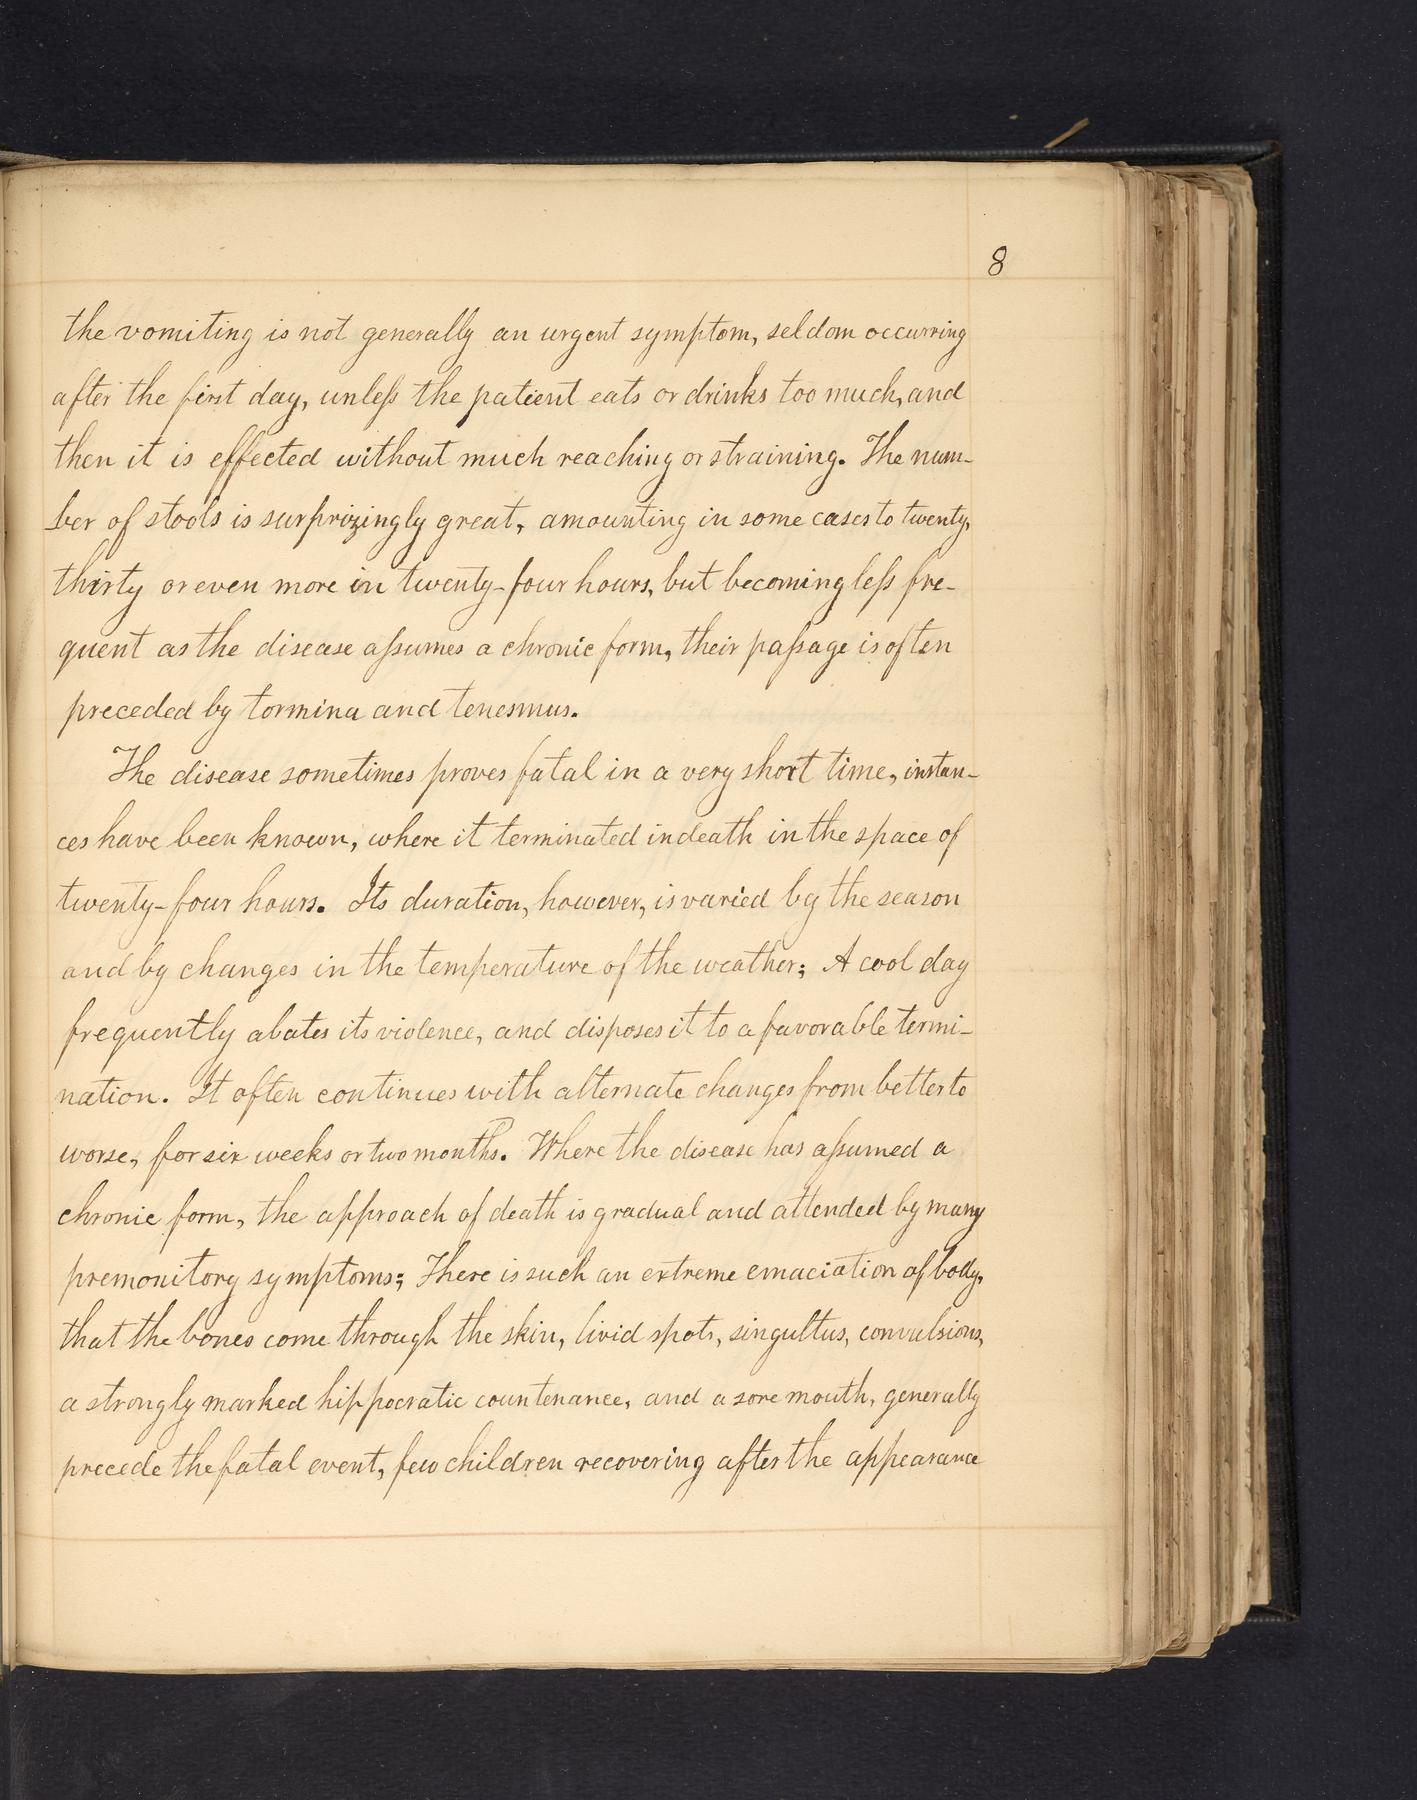 8
the vomiting is not generally an urgent symptom, seldom occurring
after the first day, unleſs the patient eats or drinks too much, and
then it is effected without much reaching or straining. The num-
ber of stools is surprizingly great, amounting in some cases to twenty,
thirty or even more in twenty-four hours, but becoming leſs fre-
quent as the disease aſsumes a chronic form, their paſsage is often
preceded by tormina and tenesmus.
The disease sometimes proves fatal in a very short time, instan-
ces have been known, where it terminated in death in the space of
twenty-four hours. Its duration, however, is varied by the season
and by changes in the temperature of the weather; A cool day
frequently abates its violence, and disposes it to a favorable termi-
nation. It often continues with alternate changes from better to
worse, for six weeks or two months. Where the disease has aſsumed a
chronic form, the approach of death is gradual and attended by many
premonitory symptoms; There is such an extreme emaciation of body,
that the bones come through the skin, livid spots, singultus, convulsions,
a strongly marked hippocratic countenance, and a sore mouth, generally
precede the fatal event, few children recovering after the appearance